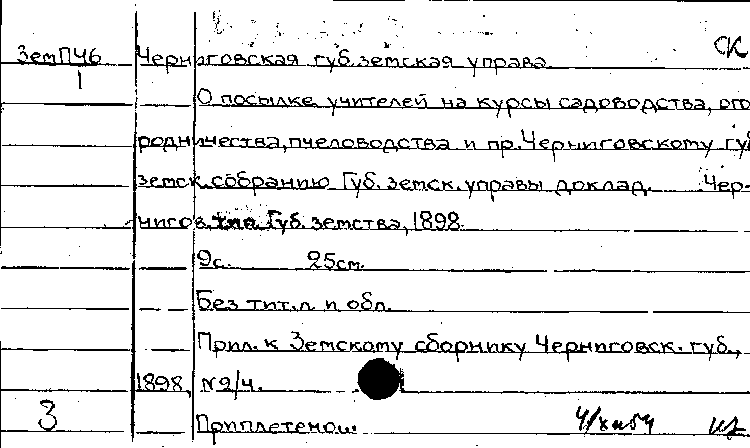 СК
ЗемПЧб Черниговская губ. земская управа.
1
О посылке учителей на курсы садоводства, ого
родничества, пчеловодства и пр. Черниговскому гу
земск. собранию Губ. земск. управы доклад. Чер-
нигов, тип. Губ. земства, 1898.
9с. 25см.
Без тит. л. и обл.
Прил. к Земскому сборнику Черниговск. губ.,
1898, №2/4.
3 Приплетено: